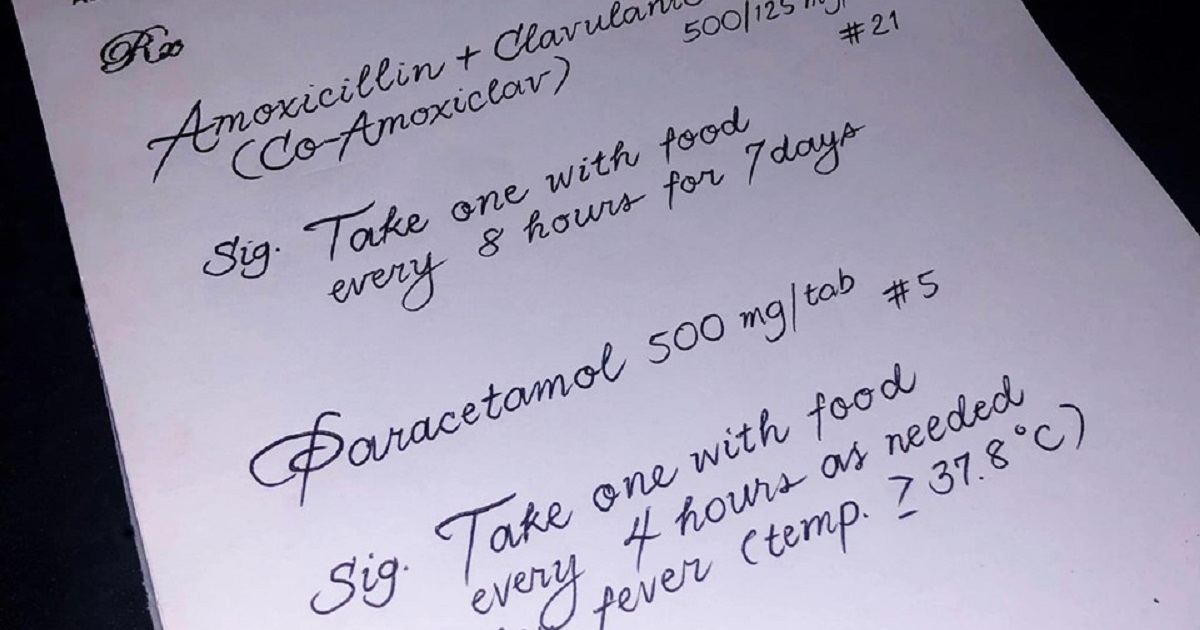 Rx
Amoxicillin + Clavulanic
500/125 mg/
#21
(Co-Amoxiclav)
Sig. Take one with food
every 8 hours for 7 days
Paracetamol 500 mg/tab #5
Sig. Take one with food
every 4 hours as needed
fever (temp. ≥ 37.8°C)